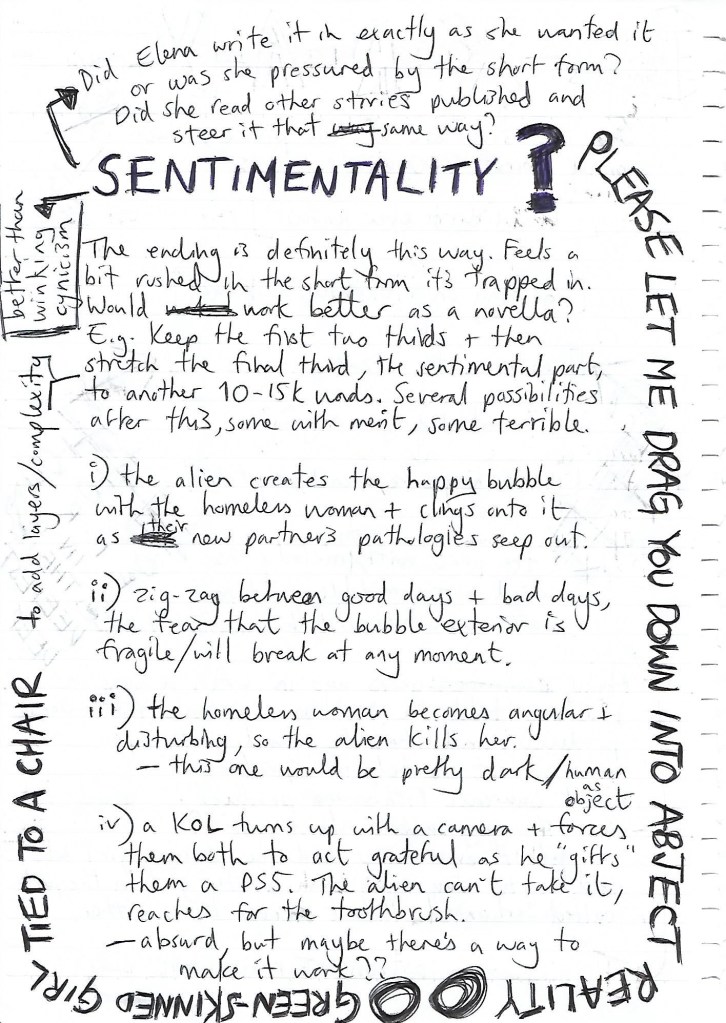 Did Elena write it in exactly as she wanted it
or was she pressured by the short form?
Did she read other stories published and
steer it that way same way?
SENTIMENTALITY ?
better than
winking
cynicism
The ending is definitely this way. Feels a
bit rushed in the short form it's trapped in.
Would work better as a novella?
E.g. Keep the first two thirds + then
stretch the final third, the sentimental part,
to another 10-15k words. Several possibilities
after this, some with merit, some terrible.
to add layers/complexity
i) the alien creates the happy bubble
with the homeless woman + clings onto it
as their new partner's pathologies seep out.
ii) zig-zag between good days + bad days,
the fear that the bubble exterior is
fragile/will break at any moment.
iii) the homeless woman becomes angular +
disturbing, so the alien kills her.
– this one would be pretty dark/human
as
object
iv) a KOL turns up with a camera + forces
them both to act grateful as he "gifts"
them a PS5. The alien can't take it,
reaches for the toothbrush.
– absurd, but maybe there's a way to
make it work??
PLEASE LET ME DRAG YOU DOWN INTO ABJECT
REALITY
GREEN-SKINNED GIRL
TIED TO A CHAIR